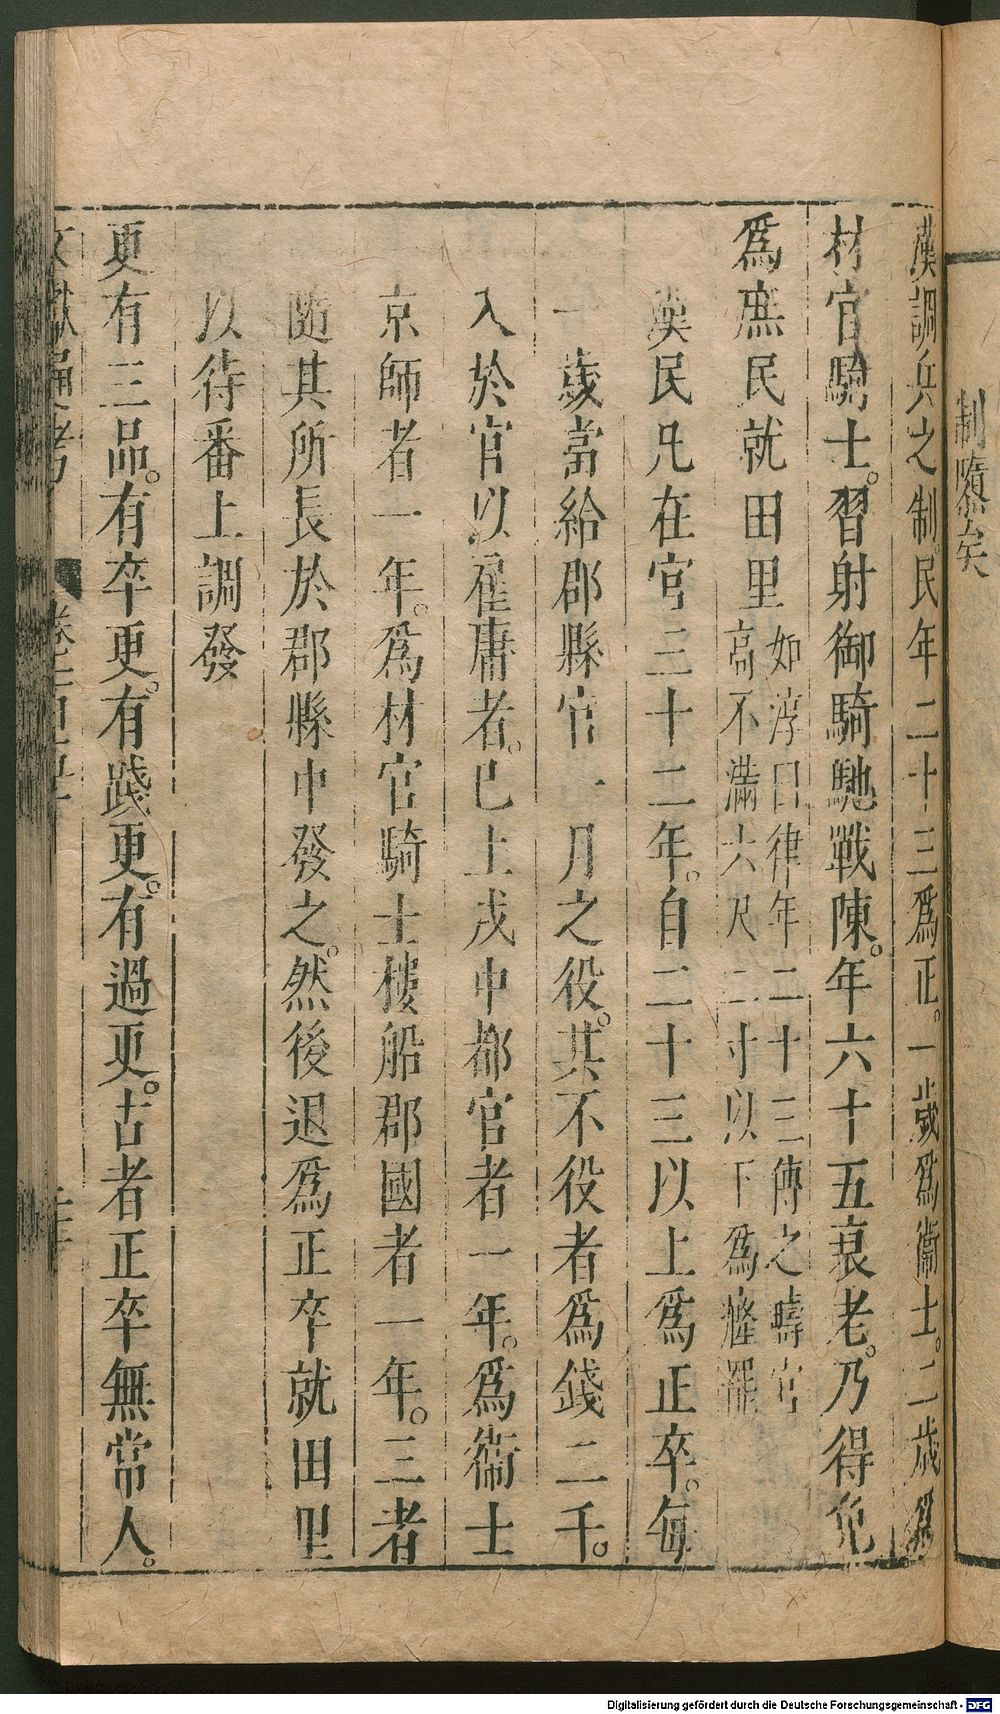 制隳矣
漢調兵之制。民年二十三爲正。一歲爲衞士。二歲爲
材官騎士。習射御騎馳戰陳。年六十五衰老。乃得免
爲庶民就田里如淳曰律年二十三傅之疇官
高不滿六尺二寸以下爲癃罷
漢民凡在官三十二年。自二十三以上爲正卒。每
一歲當給郡縣官一月之役。其不役者爲錢二千。
入於官以雇庸者。已上戍中都官者一年。爲衞士
京師者一年。爲材官騎士樓船郡國者一年。三者
隨其所長於郡縣中發之。然後退爲正卒就田里
以待番上調發
更有三品。有卒更。有踐更。有過更。古者正卒無常人。
文獻通考
Digitalisierung gefördert durch die Deutsche Forschungsgemeinschaft - DFG